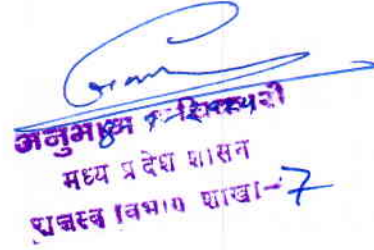 अनुभाग अधिकारी
मध्य प्रदेश शासन
राजस्व विभाग शाखा-7